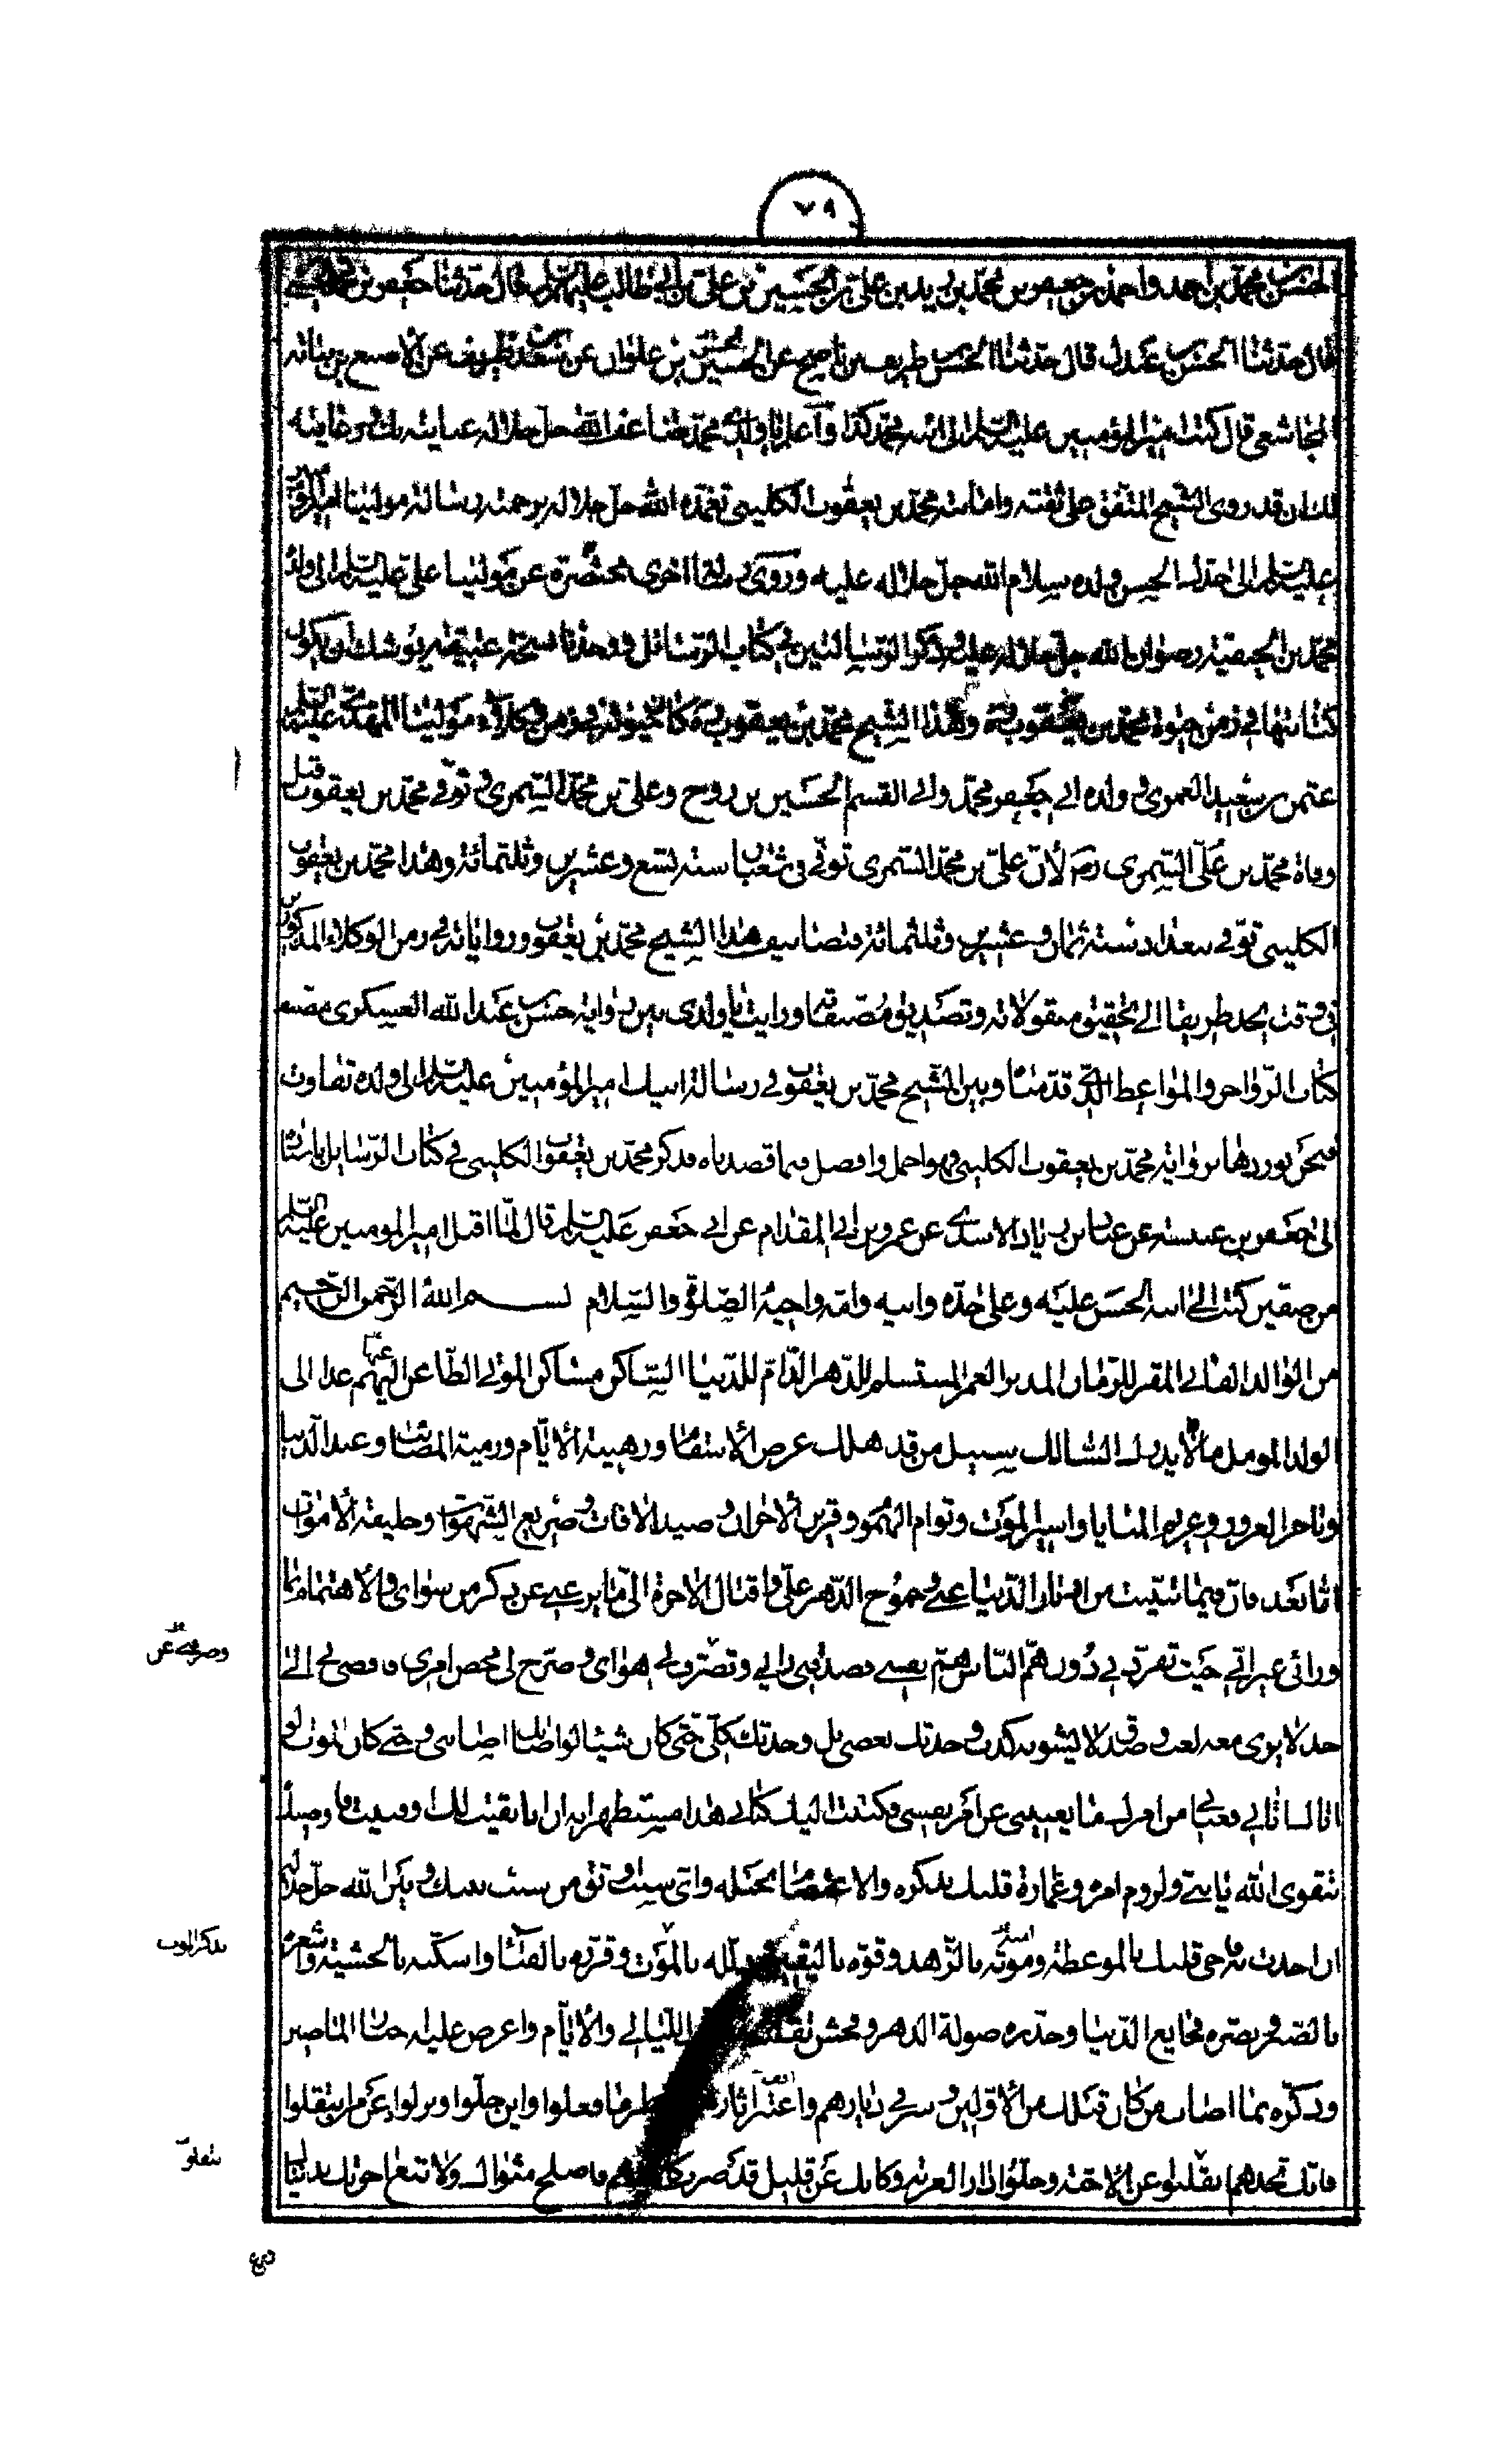 ٧٩
الحسن محمد بن احمد واحمد بن جعفر بن محمد بن زيد بن على بن الحسين بن على بن ابى طالب عليهم السلم قال حدثنا جعفر بن محمد الحسنى
قال حدثنا الحسن بن عبدل قال حدثنا الحسن بن طريف بن ناصح عن الحسين بن علوان عن سعد بن طريف عن الاصبغ بن نباته
المجاشعى قال كتب امير المؤمنين عليه السلم الى ابنه محمد كذا واعلم يا ولدى محمد ضاعف الله جل جلاله عنايته بك ورعايته
لك ان قد روى الشيخ المتفق على ثقته وامانته محمد بن يعقوب الكلينى تغمده الله جل جلاله برحمته رسالة مولينا امير المؤمنين
عليه السلم الى جدك الحسن ولده سلام الله جل جلاله عليه وروى رسالة اخرى مختصرة عن مولينا على عليه السلم الى ولده
محمد بن الحنفية رضوان الله جل جلاله عليه وذكر الرسالتين فى كتاب الرسائل ووجدنا نسخة عتيقة يوشك ان يكون
كتابتها فى زمن حيوة محمد بن يعقوب ره وهذا الشيخ محمد بن يعقوب ره كان حيوته فى زمن وكلاء مولينا المهدى عليه السلم
عثمن بن سعيد العمرى وولده ابى جعفر محمد وابى القسم الحسين بن روح وعلى بن محمد السمرى وتوفى محمد بن يعقوب قبل
وفاة محمد بن على السمرى ره لان على بن محمد السمرى توفى فى شعبان سنه تسع وعشرين وثلثمائة وهذا محمد بن يعقوب
الكلينى توفى ببغداد سنة ثمان وعشرين وثلثمائة فتصانيف هذا الشيخ محمد بن يعقوب ورواياته فى زمن الوكلاء المذكورين
فى وقت يجد طريقا الى تحقيق منقولاته وتصديق مصنفاته ورايت يا ولدى بين رواية حسن بن عبد الله العسكرى مصنف
كتاب الزواجر والمواعظ الذى قدمنا وبين الشيخ محمد بن يعقوب فى رسالة ابيك امير المؤمنين عليه السلم الى ولده تفاوت
فنحن نوردها برواية محمد بن يعقوب الكلينى فهو اجمل وافضل فيما قصدناه فذكر محمد بن يعقوب الكلينى فى كتاب الرسايل باسناده
الى جعفر بن عنبسة عن عباد بن زياد الاسدى عن عمرو بن ابى المقدام عن ابى جعفر عليه السلم قال لما اقبل امير المومنين عليه السلم
من صفين كتب الى ابنه الحسن عليه وعلى جده وابيه وامه واخيه الصلوة والسلام بسم الله الرحمن الرحيم
من الوالد الفانى المقر للزمان المدبر العمر المستسلم للدهر الذام للدنيا الساكن مساكن الموتى الظاعن اليهم عنها غدا الى
الولد المومل ما لا يدرك السالك سبيل من قد هلك غرض الاسقام ورهينة الايام ورمية المصائب وعبد الدنيا
وتاجر الغرور وغريم المنايا واسير الموت وتوام الهموم وقرين الاحزان وصيد الافات وصريع الشهوات وخليفة الاموات
اما بعد فان فيما تبينت من ادبار الدنيا عنى وجموح الدهر على واقبال الاخرة الى ما يزعنى عن ذكر من سواى والاهتمام بما
ورائى غير انى حيث تفرد بى دون هم الناس هم نفسى فصدفنى رايى وتصرف بى هواى وصرح لى محض امرى فافضى بى الى
وصرفنى عن
جد لا يرى معه لعب وصدق لا يشوبه كذب وجدتك بعضى بل وجدتك كلى حتى كان شيئا لو اصابك اصابنى وحتى كان الموت لو
اتاك اتانى فعنانى من امرك ما يعنينى عن امر نفسى فكتبت اليك كتابى هذا مستظهرا به ان انا بقيت لك او فنيت فاوصيك
بتقوى الله يا بنى ولزوم امره وعمارة قلبك بذكره والاعتصام بحبله واى سبب اوثق من سبب بينك وبين الله جل جلاله
ان اخذت به فاحى قلبك بالموعظة وموته بالزهد وقوه باليقين وذلله بالموت وقرره بالفنا واسكنه بالخشية واشعره
بذكر الموت
بالصبر وبصره فجايع الدنيا وحذره صولة الدهر وفحش تقلب الليالى والايام واعرض عليه اخبار الماضين
وذكره بما اصاب من كان قبلك من الاولين وسر فى ديارهم واعتبر اثارهم وانظر ما فعلوا واين حلوا ونزلوا وعمن انتقلوا
فانك تجدهم انتقلوا عن الاحبة وحلوا دار الغربة وكانك عن قليل قد صرت كاحدهم فاصلح مثواك ولا تبع اخرتك بدنياك